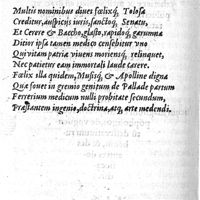 Multis nominibus dives fœlixq́; Tolosa
Creditur, auspicijs iuris, sanctoq́; Senatu,
Et Cerere & Baccho, glasto, rapidoq́; garumna
Ditior ipsa tamen medico censebitur uno
Qui vitam patria vivens moriensq́; relinquet,
Nec patietur eam immortali laude carere.
Fœlix illa quidem, Musisq́; & Apolline digna
Quæ fovet in gremio genitum de Pallade partum
Ferrerium medicum nulli probitate secundum,
Præstantem ingenio, doctrina, atq; arte medendi.